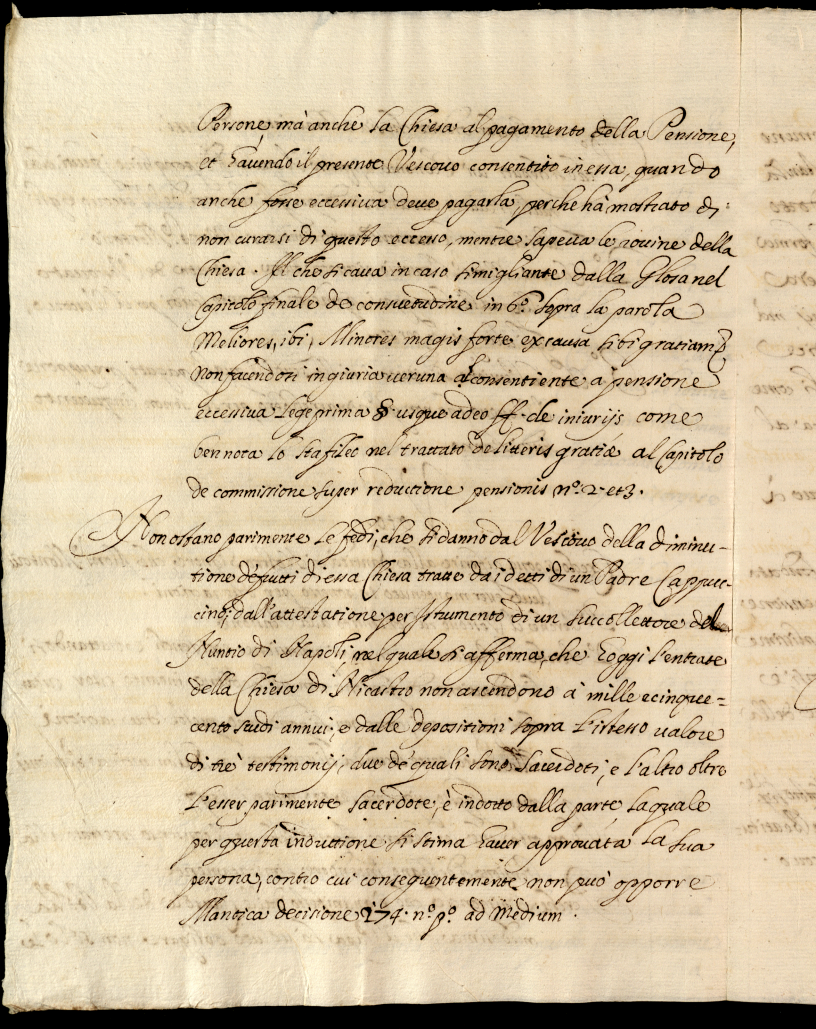 Persone, mà anche la Chiesa al pagamento della Pensione,
et havendo il presente Vescovo consentito in essa, quando
anche fosse eccessiva deve pagarla, perche hà mostrato di
non curarsi di questo eccesso, mentre sapeva le rovine della
Chiesa. Il che si cava in caso simigliante dalla Glosa nel
Capitolo finale de consuetudine in 6.º sopra la parola
Meliores, ibi, Minores magis forte ex causa sibi gratiam,
non facendosi ingiuria veruna al consentiente a pensione
eccessiva lege prima §. usque adeo ff. de iniurijs come
ben nota lo Stafileo nel trattato de litteris gratiæ al Capitolo
de commissione super reductione pensionis nº. 2. et 3.
Non ostano parimente le fedi, che si danno dal Vescovo della diminu-
tione de frutti di essa Chiesa tratte da i detti di un Padre Cappuc-
cino, dall'attestatione per Istumento di un succollettore del
Nuntio di Napoli, nel quale si afferma, che hoggi l'entrate
della Chiesa di Nicastro non ascendono à mille e cinque=
cento scudi annui, e dalle depositioni sopra l'istesso valore
di trè testimonij, due de quali sono sacerdoti, e l'altro oltre
l'esser parimente sacerdote, è indotto dalla parte, la quale
per questa induttione si stima haver approvata la sua
persona, contro cui conseguentemente non può opporre
Mantica decisione 174. nº. pº. ad medium.